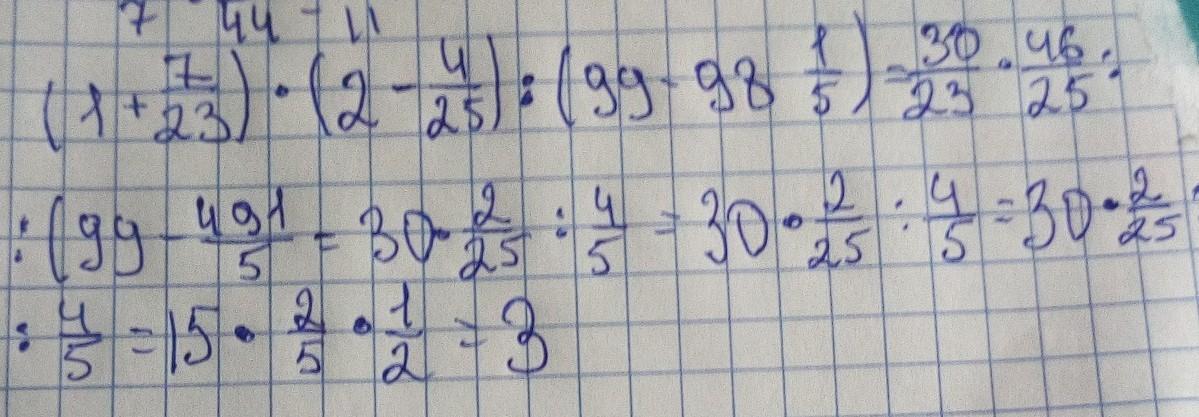 7 44 - 11
(1 + 7/23) · (2 - 4/25) : (99 - 98 1/5) = 30/23 · 46/25 :
: (99 - 491/5 = 30 · 2/25 : 4/5 = 30 · 2/25 : 4/5 = 30 · 2/25
: 4/5 = 15 · 2/5 · 1/2 = 3